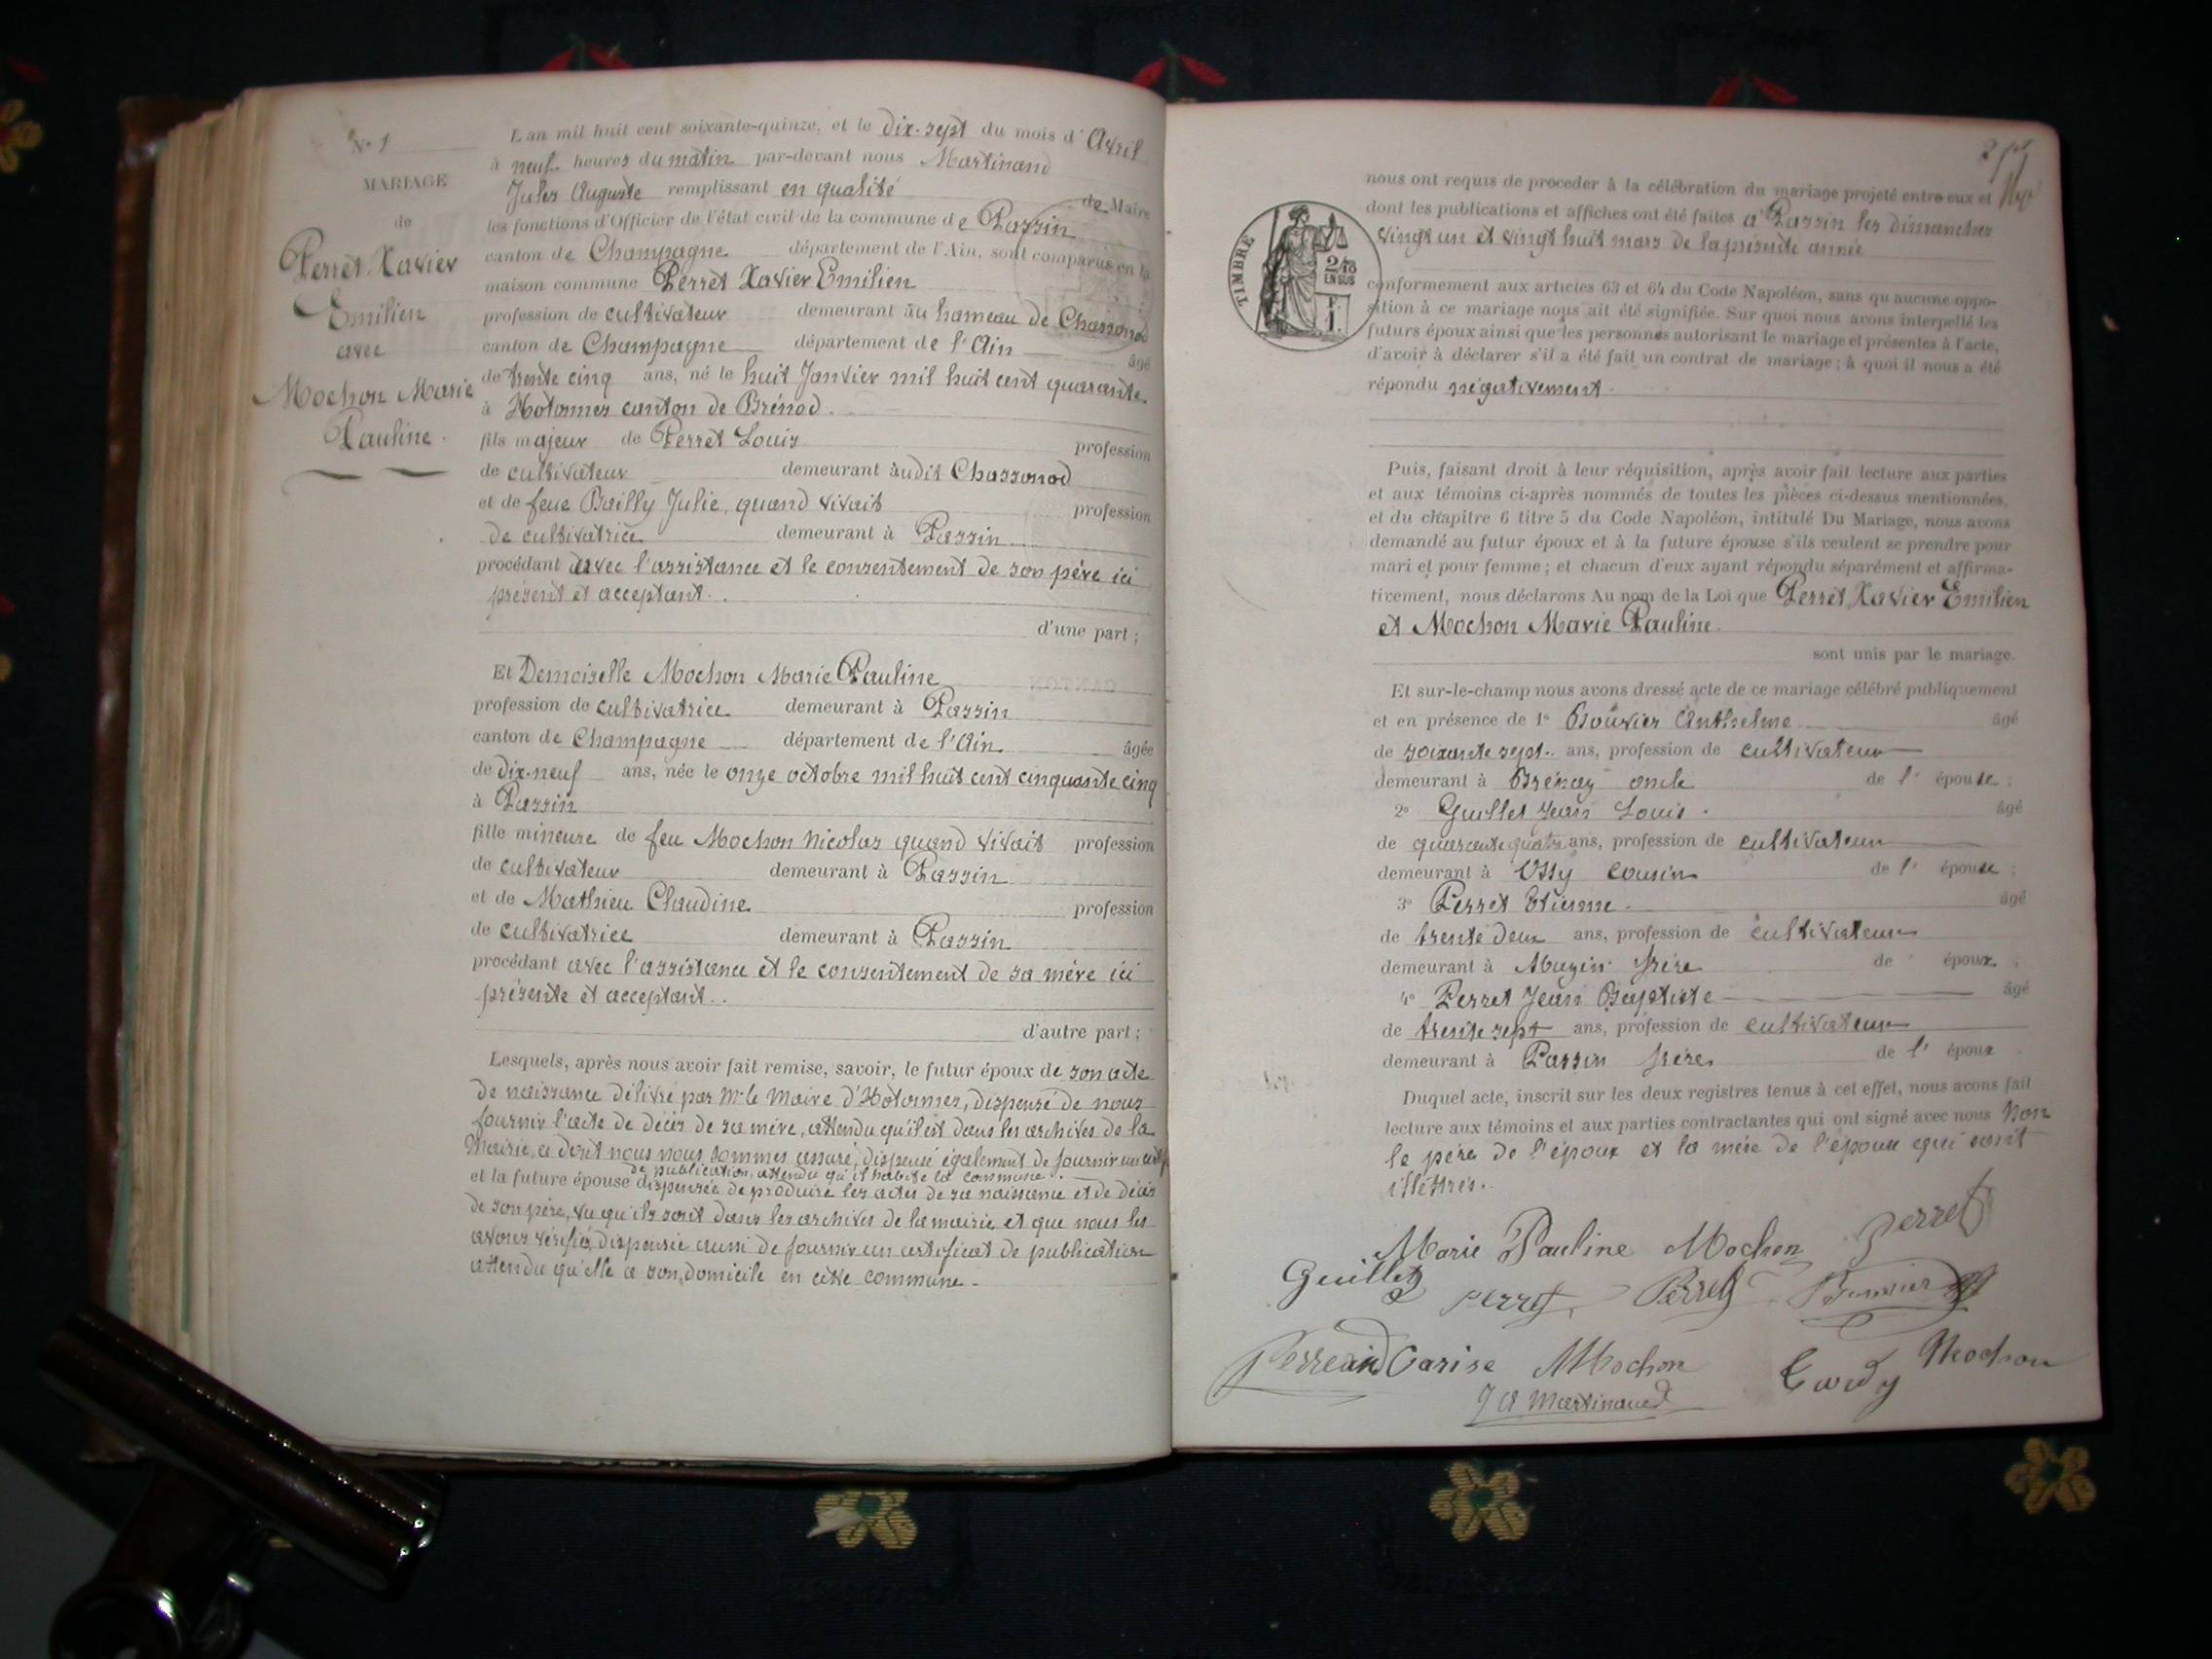 N° 1
MARIAGE
de
Perret Xavier
Emilien
avec
Mochon Marie
Pauline.
L'an mil huit cent soixante-quinze, et le dix-sept du mois d'Avril
à neuf heures du matin par-devant nous Martinand
Jules Auguste remplissant en qualité de Maire
les fonctions d'Officier de l'état civil de la commune de Passin
canton de Champagne département de l'Ain, sont comparus en la
maison commune Perret Xavier Emilien
profession de cultivateur demeurant au hameau de Chassonod
canton de Champagne département de l'Ain âgé
de trente cinq ans, né le huit Janvier mil huit cent quarante
à Hotonnes canton de Brénod.
fils majeur de Perret Louis profession
de cultivateur demeurant audit Chassonod
et de feue Bailly Julie, quand vivait profession
de cultivatrice demeurant à Passin
procédant avec l'assistance et le consentement de son père ici
présent et acceptant.
d'une part;
Et Demoiselle Mochon Marie Pauline
profession de cultivatrice demeurant à Passin
canton de Champagne département de l'Ain âgée
de dix-neuf ans, née le onze octobre mil huit cent cinquante cinq
à Passin
fille mineure de feu Mochon Nicolas quand vivait profession
de cultivateur demeurant à Passin
et de Mathieu Claudine profession
de cultivatrice demeurant à Passin
procédant avec l'assistance et le consentement de sa mère ici
présente et acceptant.
d'autre part;
Lesquels, après nous avoir fait remise, savoir, le futur époux de son acte
de naissance délivré par Mr le Maire d'Hotonnes, dispensé de nous
fournir l'acte de décès de sa mère, attendu qu'il est dans les archives de la
Mairie, ce dont nous nous sommes assuré, dispensé également de fournir un
de publication, attendu qu'il habite la commune.
et la future épouse dispensée de produire les actes de sa naissance et de décès
de son père, vu qu'ils sont dans les archives de la mairie et que nous les
avons vérifiés, dispensée aussi de fournir un certificat de publication
attendu qu'elle a son domicile en cette commune.
nous ont requis de procéder à la célébration du mariage projeté entre eux et
dont les publications et affiches ont été faites à Passin les dimanches
vingt un et vingt huit mars de la présente année
TIMBRE
2/10
EN SUS
conformément aux articles 63 et 64 du Code Napoléon, sans qu'aucune oppo-
sition à ce mariage nous ait été signifiée. Sur quoi nous avons interpellé les
futurs époux ainsi que les personnes autorisant le mariage et présentes à l'acte,
d'avoir à déclarer s'il a été fait un contrat de mariage; à quoi il nous a été
répondu négativement.
Puis, faisant droit à leur réquisition, après avoir fait lecture aux parties
et aux témoins ci-après nommés de toutes les pièces ci-dessus mentionnées,
et du chapitre 6 titre 5 du Code Napoléon, intitulé Du Mariage, nous avons
demandé au futur époux et à la future épouse s'ils veulent se prendre pour
mari et pour femme; et chacun d'eux ayant répondu séparément et affirma-
tivement, nous déclarons Au nom de la Loi que Perret Xavier Emilien
et Mochon Marie Pauline.
sont unis par le mariage.
Et sur-le-champ nous avons dressé acte de ce mariage célébré publiquement
et en présence de 1° Bouvier Anthelme âgé
de soixante sept ans, profession de cultivateur
demeurant à Brénaz oncle de l'épouse;
2° Guillet Jean Louis. âgé
de quarante quatre ans, profession de cultivateur
demeurant à Ossy cousin de l'épouse;
3° Perret Etienne. âgé
de trente deux ans, profession de cultivateur
demeurant à Muzin frère de époux;
4° Perret Jean Baptiste âgé
de trente sept ans, profession de cultivateur
demeurant à Passin frère de l'époux.
Duquel acte, inscrit sur les deux registres tenus à cet effet, nous avons fait
lecture aux témoins et aux parties contractantes qui ont signé avec nous Non
le père de l'époux et la mère de l'épouse qui sont
illétrés.
Marie Pauline Mochon Perret
Guillet Perret Perret Bouvier
Perreand Carise Mochon Gardy Mochon
J A Martinand